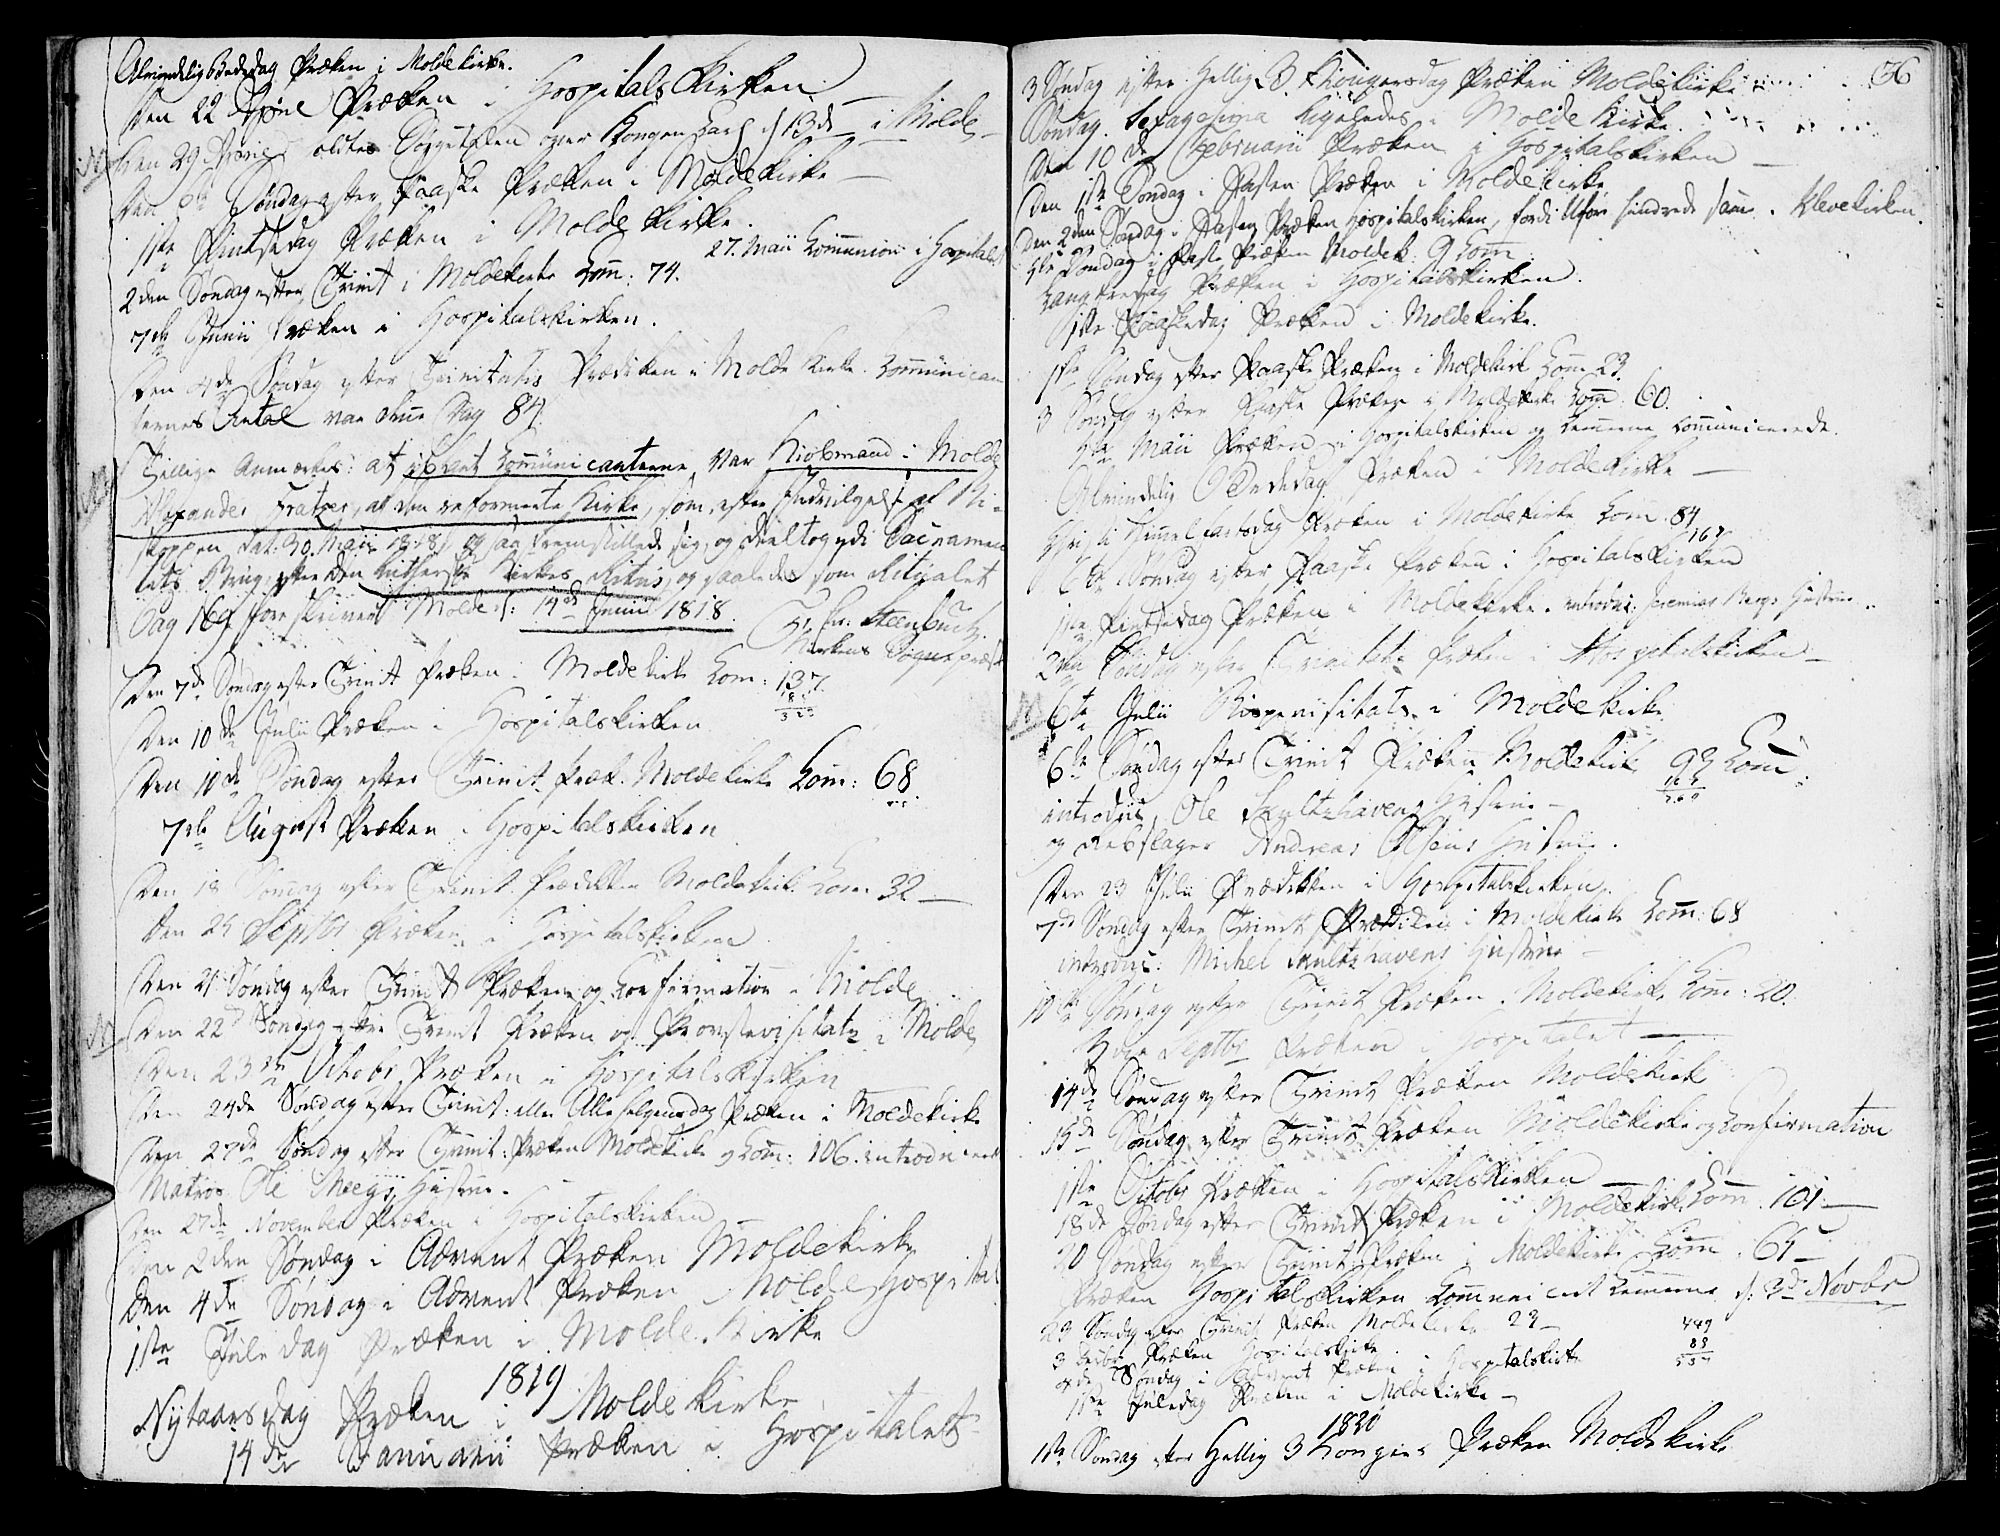 Almindelig Bededag Præken i Molde kirke.
Den 22 April Præken i Hospitals Kirken
Den 29 holdtes Sørgetalen over Kongen Carl d 13de i Molde
Den Søndag efter Paaske Præken i Molde kirke
1ste Pintsedag Præken i Molde Kirke.
27. Maii Communion i Hospitalet
2den Søndag efter Trinit i Molde kirke Com: 74.
7de Junii Præken i Hospitalskirken.
Den 4de Søndag efter Trinitatis Prædiken i Molde Kirke. Communican
ternes Antal var denne Dag 84.
Tillige anmærkes: at iblant Communicanterne, var Kiøbmand i Molde
Alexander af den reformeerte Kirke, som, efter Indvilgelse af Bi-
skoppen dat: 30 Maii 1818 fremstillede sig, og deeltog i Sacramen
tets Brug efter den Lutherske Kirkes Ritus, og saaledes som Ritualet
Pag 169 foreskriver. Molde d: 14de Junii 1818.
Steenbuch
Sognepræst
Den 7de Søndag efter Trinit Præken Molde kirke Com: 137.
Den 10de Julii Præken i Hospitalskirken
Den 10de Søndag efter Trinit Præk. Molde kirke Com: 68
7de August Præken i Hospitalskirken
Den 18 Søndag efter Trinit Prædiken Moldekirk. Com 32
Den 25 Septbr Præken i Hospitalskirken
Den 21 Søndag efter Trinit Præken og Confirmation i Molde
Den 22de Søndag efter Trinit Præken og Provstevisitatz i Molde
Den 23de Octobr Præken i Hospitalskirken
Den 24de Søndag efter Trinit: eller Alle helgensdag Præken i Moldekirke
Den 27de Søndag efter Trinit: Præken Moldekirke og Com: 106. introduceret
Matros Ole Hustrue.
Den 27de November Præken i Hospitalskirken
Den 2den Søndag i Advent Præken Moldekirke
Den 4de Søndag i Advent Præken Molde Hospital
1ste Juledag Præken i Molde Kirke
1819
Nytaarsdag Præken i Molde Kirke
14de Januarii Præken i Hospitalet
36
3 Søndag efter Hellig 3 Kongersdag Præken Moldekirke
Søndag Sexagesima ligeledes i Molde Kirke.
Den 10de Februarii Præken i Hospitalskirken
Den 1ste Søndag i Fasten Præken i Molde kirke
Den 2den Søndag i Fasten Præken Hospitalskirken, fordi Uføre hindrede i Klevekirken.
Søndag i Faste Præken Moldek. 9 Com
Langfredag Præken i Hospitalskirken.
1ste Paaskedag Præken i Moldekirke.
1ste Søndag efter Paaske Præken i Moldekirk Com 23.
3 Søndag efter Paaske Præken i Moldekirke Com 60.
Maii Præken i Hospitalskirken og Lemmerne communicerede.
Almindelig Bededag Præken i Moldekirke
Christi Himmelfartsdag Præken i Moldekirke Com. 84
167
6te Søndag efter Paaske Præken i Hospitalskirken
1ste Pintsedag Præken i Moldekirke. introduc: Jeremias Bergs Hustrue
2den Søndag efter Trinitatis Præken i Hospitalskirken
6te Julii Bispevisitats i Moldekirke
6te Søndag efter Trinit Præken Moldekirk 93 Com:
introduc. Ole Hustrue
og Rebslager Andreas Olsens Hustrue.
Den 23 Julii Prædiken i Hospitalskirken.
7de Søndag efter Trinit Prædiken i Moldekirk Com: 68
introduc: Michel Hustrue
10de Søndag efter Trinit Præken Moldekirk Com: 20.
3die Septbr Præken i Hospitalet
14de Søndag efter Trinit Præken Moldekirk
15de Søndag efter Trinit Præken Moldekirke og Confirmation
1ste Octobr Præken i Hospitalskirken
18de Søndag efter Trinit Præken i Moldekirk. Com 101
20 Søndag efter Trinit Præken i Moldekirk Com. 65
Præken Hospitalskirken Lemmerne d: 3de Novbr
23 Søndag efter Trinit Præken Moldekirke 23
449
3 Decbr Præken Hospitalskirke
4de Søndag i Advent Præken i Hospitalskirke
1ste Juledag Præken i Moldekirke
1820
1ste Søndag efter Hellig 3 Konger Præken Moldekirke